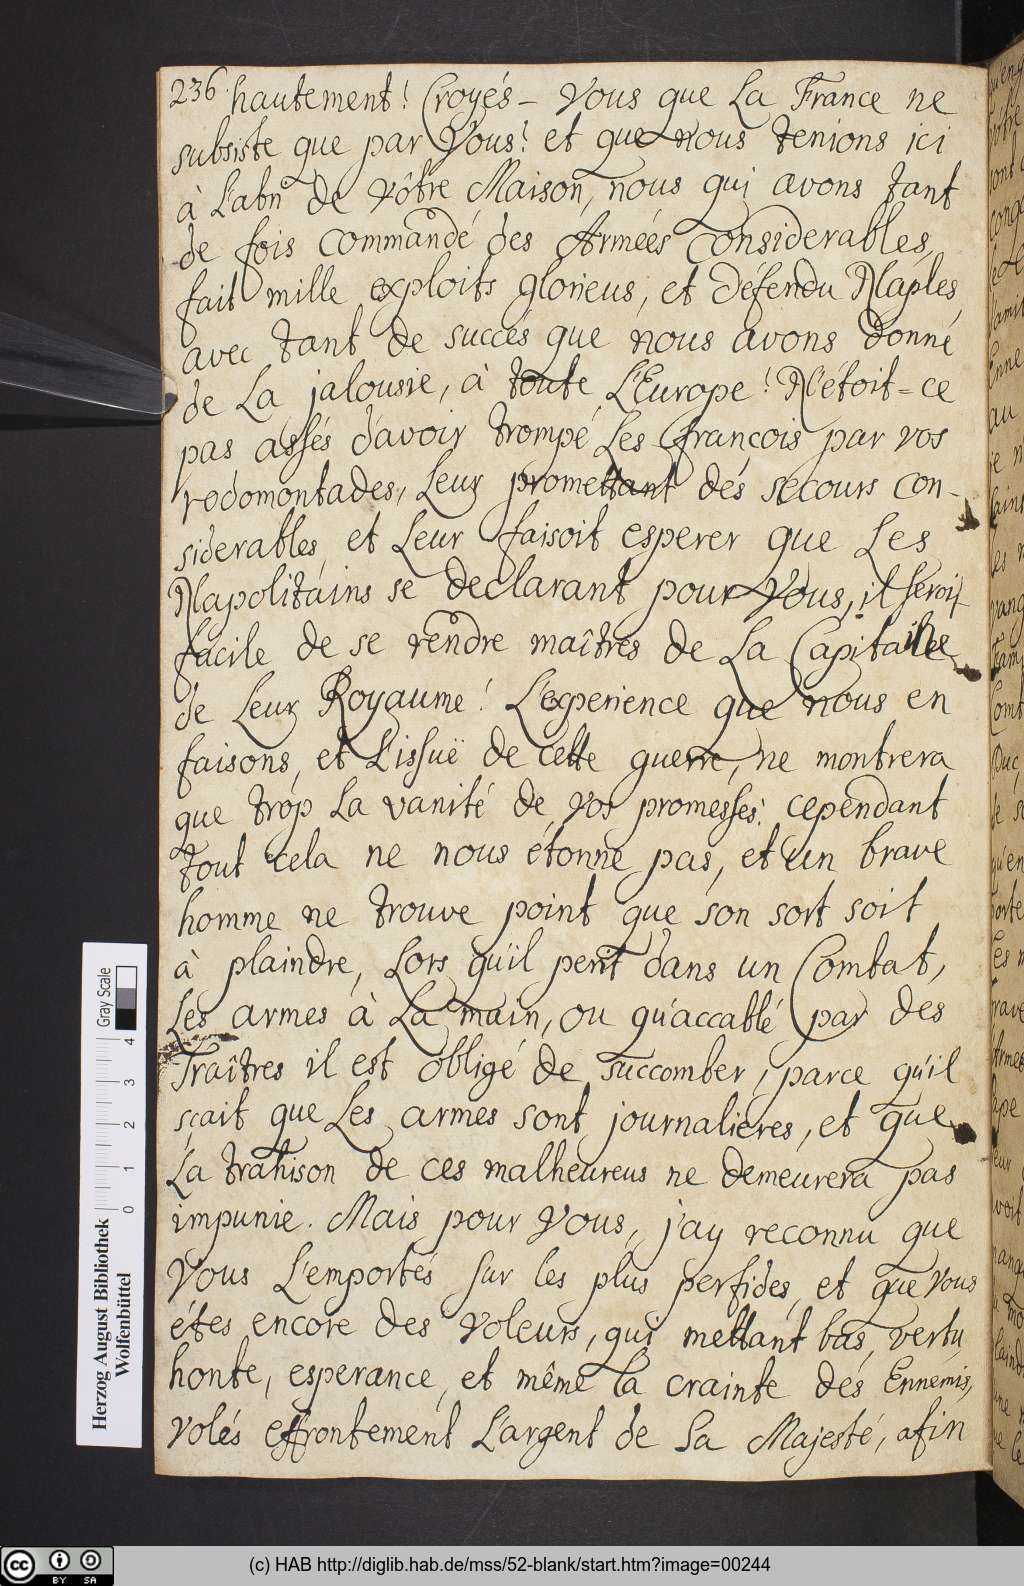 236. hautement! Croyés-Vous que La France ne
subsiste que par Vous! et que nous tenions ici
à L'abri de vôtre Maison, nous qui avons tant
de fois commandé des Armées considerables,
fait mille exploits glorieus, et défendu Naples
avec tant de succès que nous avons donné
de La jalousie, à toute L'Europe! N'étoit-ce
pas assés d'avoir trompé Les françois par vos
rodomontades, Leur promettant dés secours con-
siderables, et Leur faisoit esperer que Les
Napolitains se declarant pour Vous, il seroit
facile de se rendre maîtres de La Capitaine
de Leur Royaume! L'experience que nous en
faisons, et L'issuë de cette guerre, ne montrera
que trop La vanité de vos promesses: cependant
tout cela ne nous étonne pas, et un brave
homme ne trouve point que son sort soit
à plaindre, Lors qu'il perit dans un Combat,
Les armes à La main, ou qu'accablé par des
Traîtres il est obligé de succomber, parce qu'il
sçait que Les armes sont journalieres, et que
La trahison de ces malheureus ne demeurera pas
impunie. Mais pour Vous, j'ay reconnu que
Vous L'emportés sur les plus perfides, et que Vous
étes encore des Voleurs, qui mettant bas, vertu
honte, esperance, et même la crainte des Ennemis,
volés effrontement L'argent de Sa Majesté, afin
Herzog August Bibliothek
Wolfenbüttel
0 1 2 3 4
Gray Scale
CC BY SA
(c) HAB http://diglib.hab.de/mss/52-blank/start.htm?image=00244